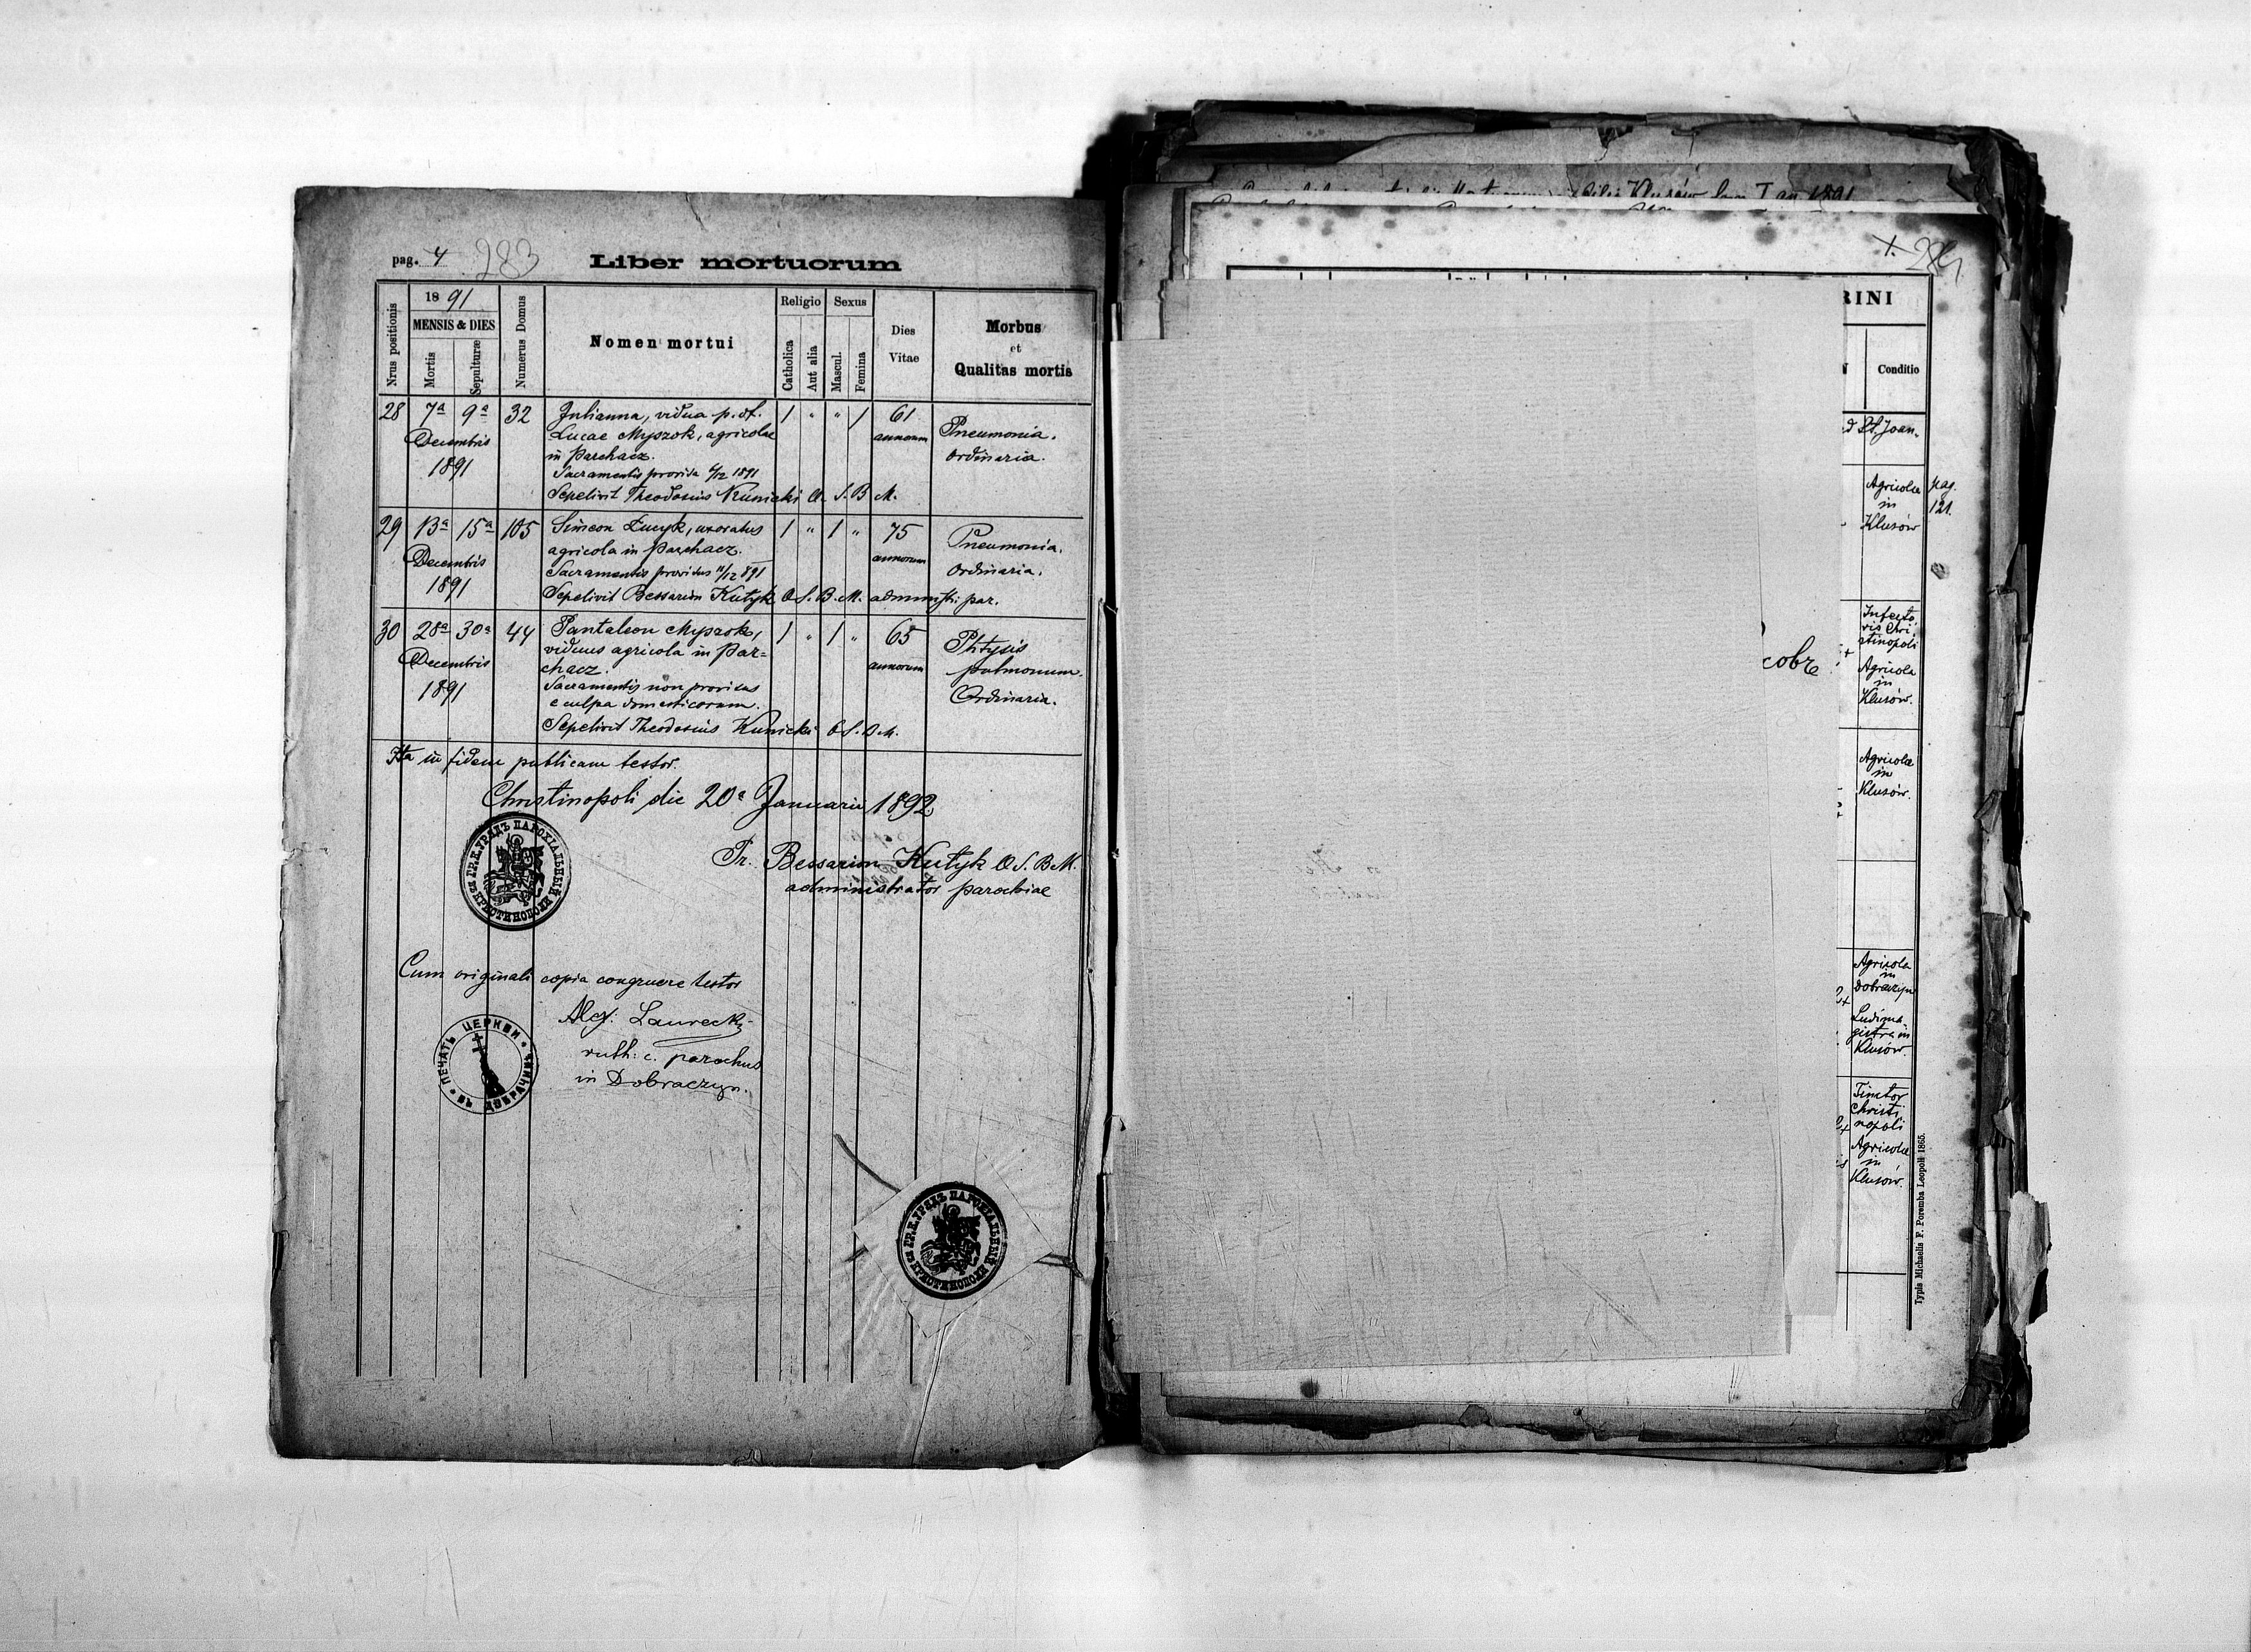 pag. 4 283 Liber mortuorum
Nrus positionis
18 91
MENSIS & DIES
Mortis
Sepulturæ
Numerus Domus
Nomen mortui
Religio
Catholica
Aut alia
Sexus
Mascul.
Femina
Dies
Vitae
Morbus
et
Qualitas mortis
28 7a 9a 32 Julianna, vidua p. df. 1 " " 1 61
Decembris Lucae Myszok, agricolae annorum Pneumonia.
1891 in Parchacz. ordinaria.
Sacramentis provisa 6/12 1891
Sepelivit Theodosius Kunicki O. S. B M.
29 13a 15a 105 Simeon Łucyk, uxoratus 1 " 1 " 75 Pneumonia.
Decembris agricola in Parchacz. annorum ordinaria.
1891 Sacramentis provisus 11/12 891
Sepelivit Bessarion Kutyk O S. B. M. administr. par.
30 28a 30a 44 Pantaleon Myszok, 1 " 1 " 65 Phtysis
Decembris viduus agricola in Par= annorum pulmonum.
1891 chacz. Ordinaria.
Sacramentis non provisus
e culpa domesticorum.
Sepelivit Theodosius Kunicki O S. B M.
Ita in fidem publicam testor.
Christinopoli die 20a Januarii 1892
Fr. Bessarion Kutyk O S. B M.
administrator parochiae
ГР. К. УРЯДЪ ПАРОХІАЛЬНЫЙ
КРИСТИНОПОЛИ
Cum originali copia congruere testor
Alex: Laurecki
ruth: c. parochus
in Dobraczyn.
ПЕЧАТЬ ЦЕРКВИ
ВЪ ДОБРАЧИНѢ
ГР. К. УРЯДЪ ПАРОХІАЛЬНЫЙ
КРИСТИНОПОЛИ
Klusów 1891
RINI
Conditio
St. Joan.
Agricolae
in
Klusów
pag.
121.
Infecto
ris Chri
stinopoli
cobr
Agricola
in
Klusów.
Agricolae
in
Klusów.
Agricola
in
Dobraczyn
Ludima
gistra in
Klusów.
Tinctor
Christi
nopoli
Agricolae
in
Klusów.
Typis Michaelis F. Poremba Leopoli 1865.